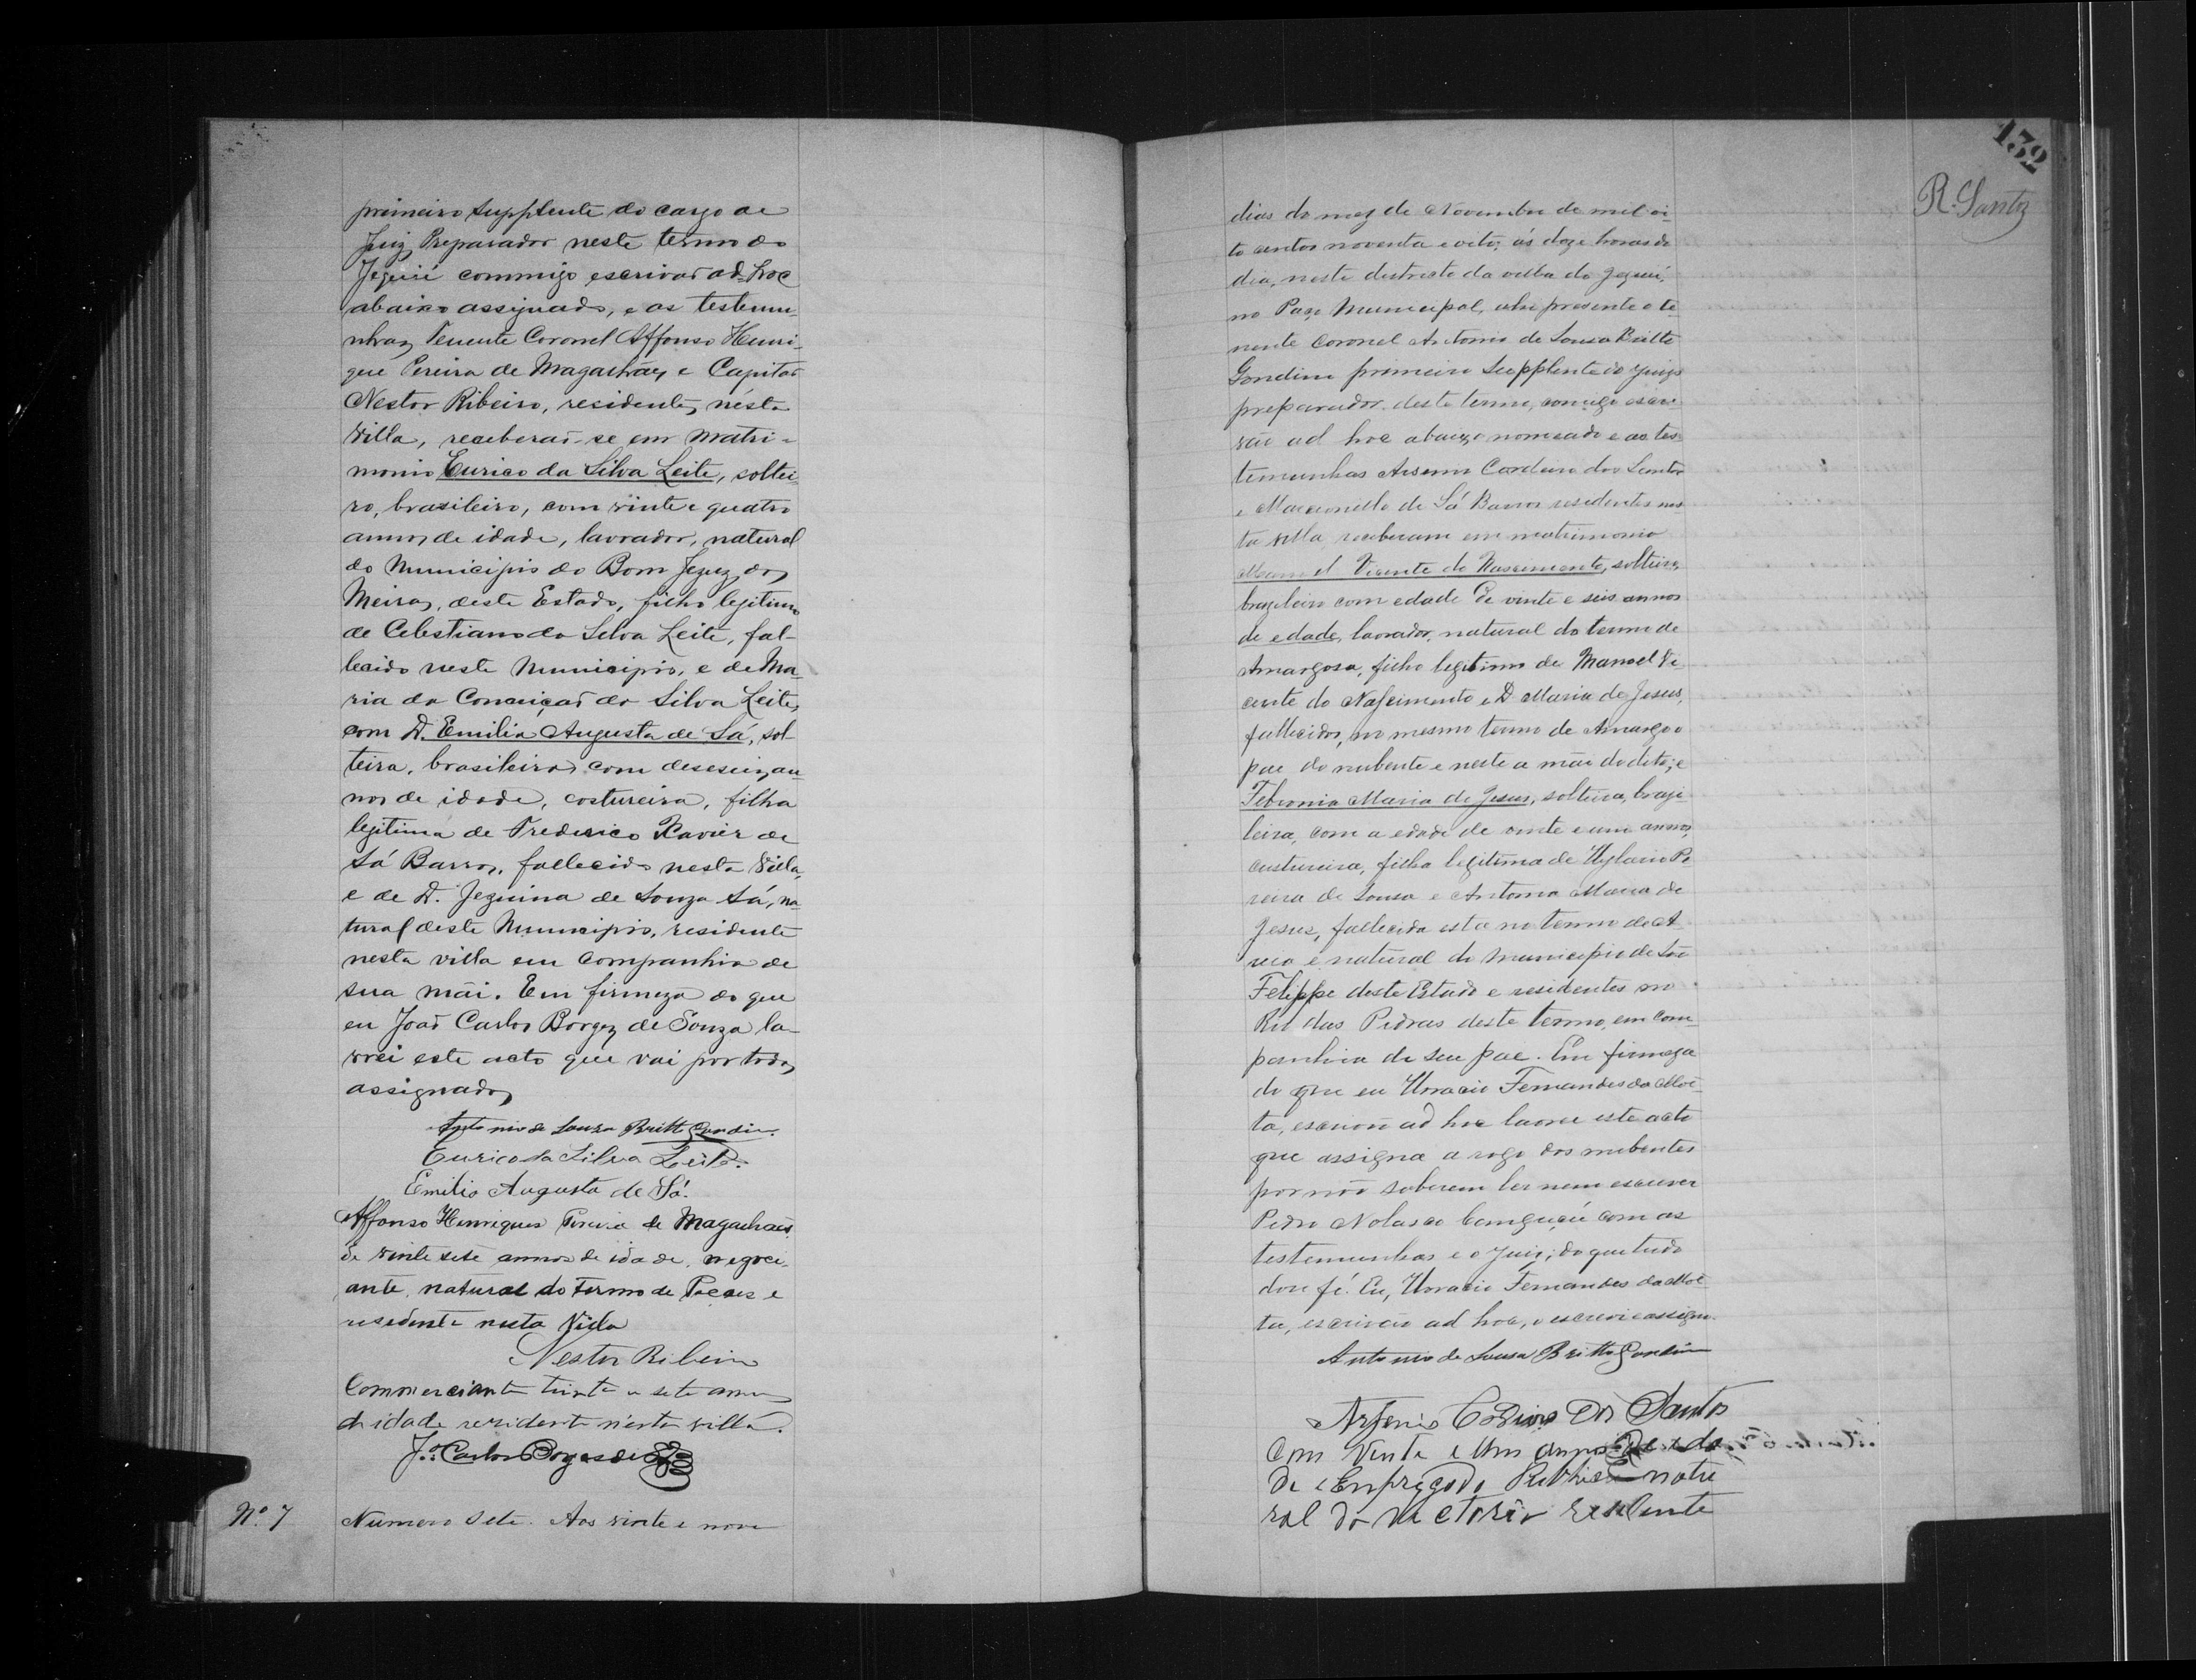 primeiro Supplente do cargo de
Juiz Preparador neste termo do
Jequié commigo escrivaõ ad-hoc
abaixo assignado, e as testemu-
nhas Tenente Coronel Affonso Henri-
que Pereira de Magalhães e Capitaõ
Nestor Ribeiro, residentes nésta
Villa, receberaõ-se em matri-
monio Eurico da Silva Leite, soltei-
ro, brasileiro, com vinte e quatro
annos de idade, lavrador, natural
do Municipio do Bom Jezuz dos
Meiras, deste Estado, filho legitimo
de Celestiano da Silva Leite, fal-
lecido neste Municipio, e de Ma-
ria da Conceiçaõ da Silva Leite,
com D. Emilia Augusta de Sá, sol-
teira, brasileira, com deseseiz an-
nos de idade, costureira, filha
legitima de Frederico Xavier de
Sá Barros, fallecido nesta Villa,
e de D. Jequina de Souza Sá, na-
tural deste Municipio, residente
nesta villa em companhia de
sua mãi. Em firmeza do que
eu Joaõ Carlos Borges de Souza la-
vrei este acto que vai por todos
assignado
Antonio de Souza Britto Gondim.
Eurico da Silva Leite.
Emilia Augusta de Sá.
Affonso Henriques Pereira de Magalhães
de vinte sete annos de idade, negoci-
ante, natural do termo de e
residente nesta Villa
Nestor Ribeiro
Commerciante trinta e sete annos
de idade residente n'esta villa.
J.º Carlos Borges de
Nº 7 Numero Sete. Aos vinte e nove
132
R. Santos
dias do mez de Novembro de mil oi-
to centos noventa e oito, ás doze horas do
dia, neste destricto da villa do Jequié,
no Paço Municipal, ahi presente o te-
nente Coronel Antonio de Sousa Britto
Gondim primeiro Supplente do Juizo
preparador deste termo, comigo escri-
vão ad hoc abaixo nomeado e as tes-
temunhas Arsenio Cordeiro dos Santos
e Marcionillo de Sá Barros residentes nes-
ta villa, receberam em matrimonio
Manoel Vicente do Nascimento, solteiro,
brazileiro com edade de vinte e seis annos
de edade, lavrador, natural do termo de
Amargosa, filho legitimo de Manoel Vi-
cente do Nascimento e D. Maria de Jesus,
fallecidos, no mesmo termo de Amargo o
pae do nubente e neste a mãe do dito; e
Febronia Maria de Jesus, solteira, brazi-
leira, com a edade de vinte e um annos,
custureira, filha legitima de Hylario Pe-
reira de Sousa e Antonia Maria de
Jesus, fallecida esta no termo de A-
rea e natural do Municipio de São
Felippe deste Estado e residentes no
Rio das Pedras deste termo, em com-
panhia de seu pae. Em firmeza
do que eu Horacio Fernandes da Mot-
ta, escrivão ad hoc lavrei este acto
que assigna a rogo dos nubentes
por não saberem ler nem escrever
Pedro Nolasco com as
testemunhas e o Juiz; do que tudo
dou fé. Eu, Horacio Fernandes da Mot-
ta, escrivão ad hoc, o escrevi e assigno.
Antonio de Sousa Britto Gondim
Arsenio Cordeiro dos Santos
Com Vinte e Um annos de ida
de Empregado Publico natu
ral da Victoria residente